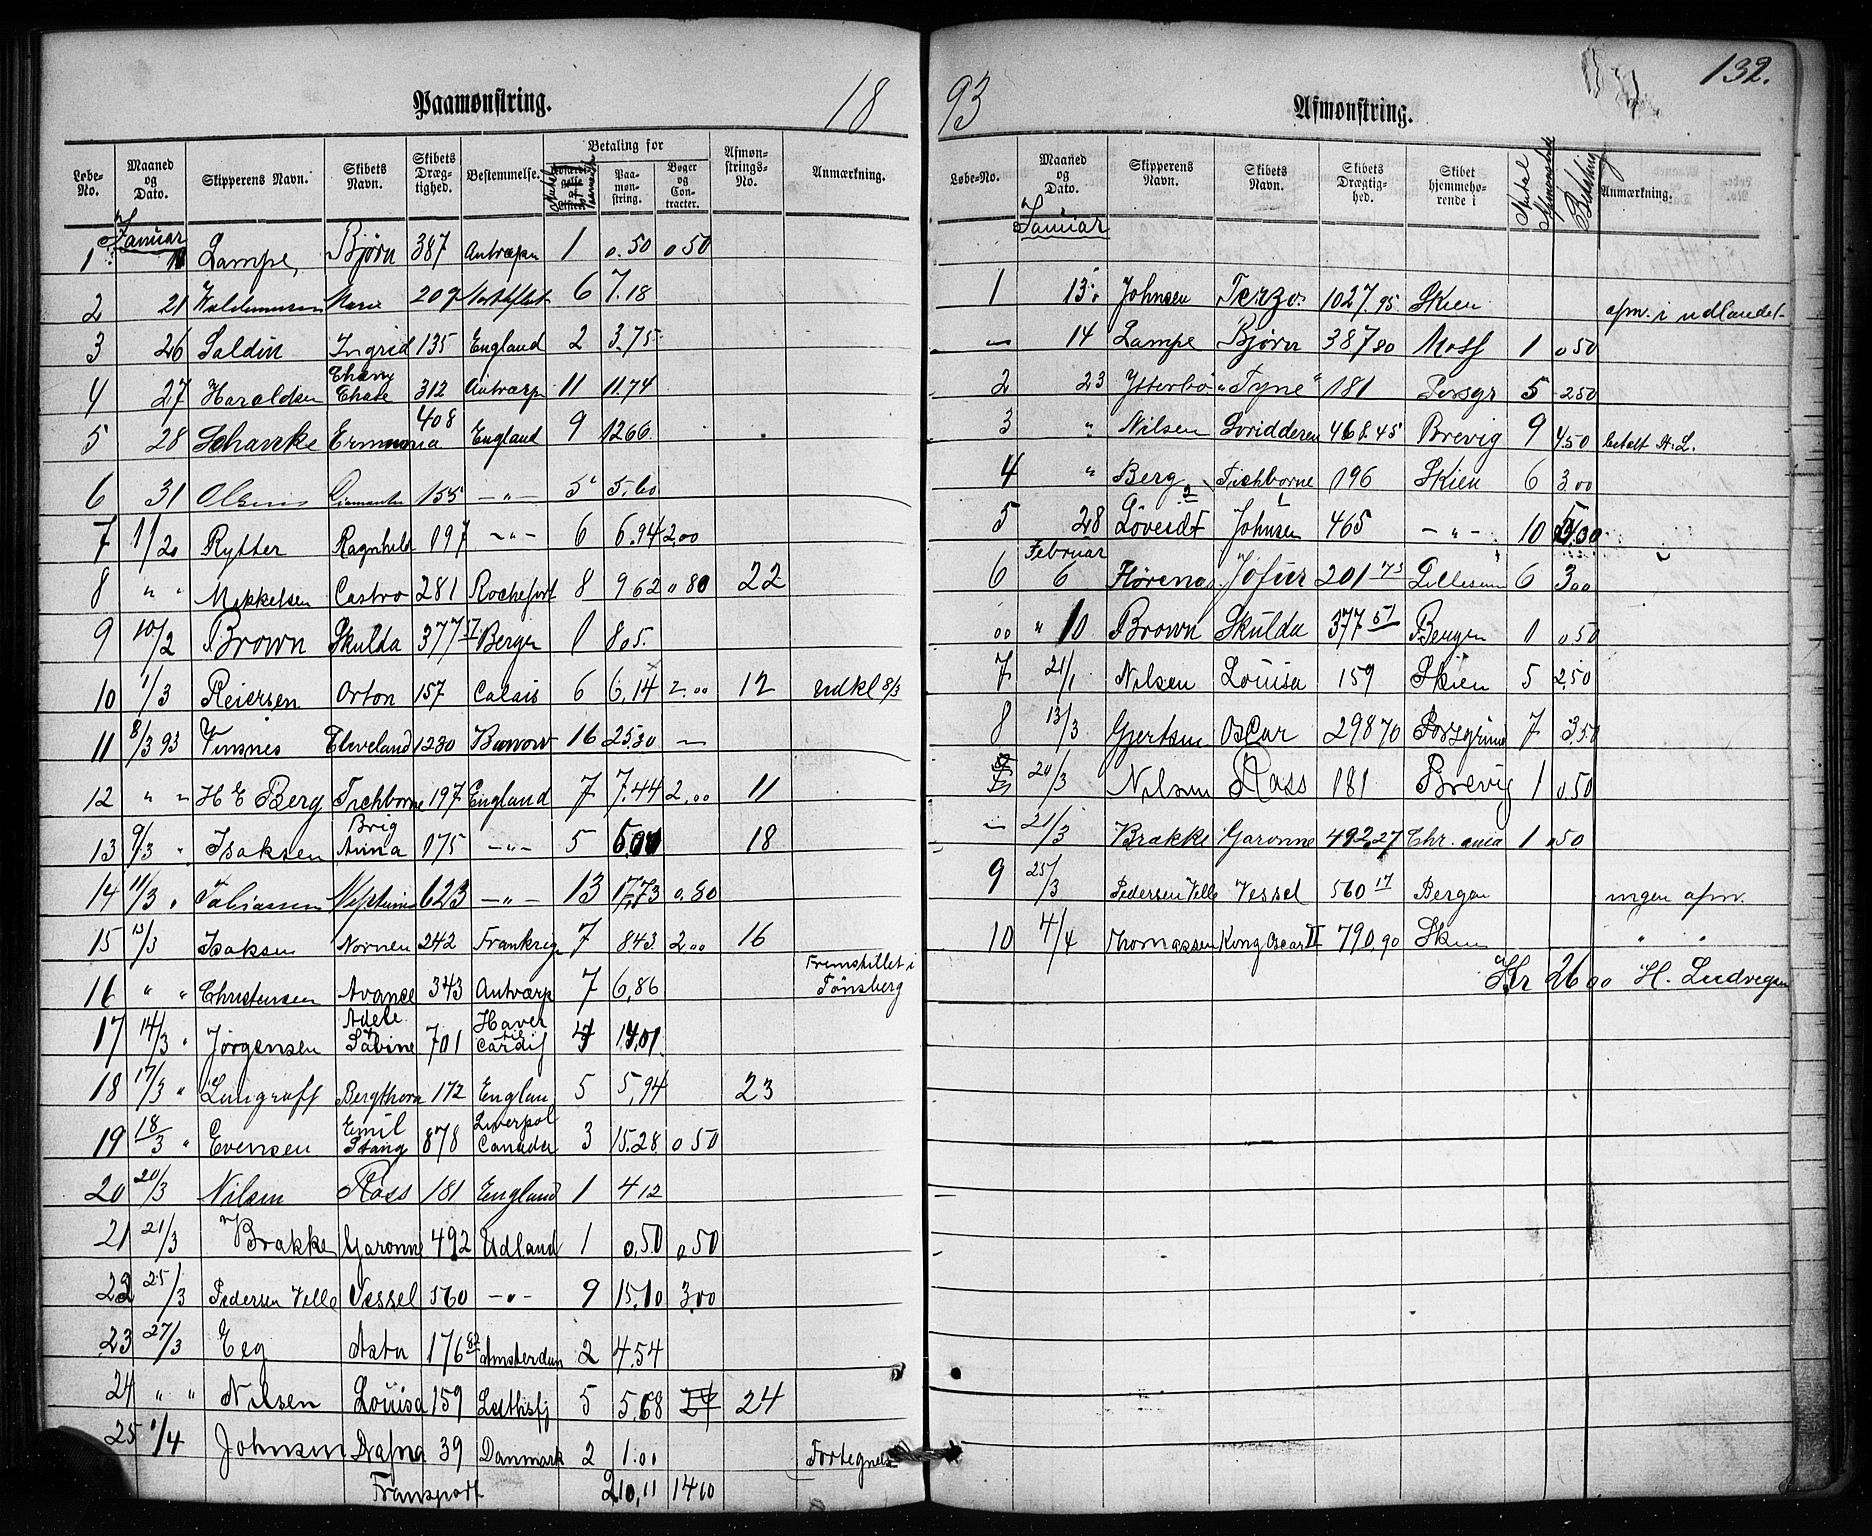 132.
Paamønstring. 18
Løbe-No. Maaned og Dato. Skipperens Navn. Skibets Navn. Skibets Dræg-tighed. Bestemmelse. Betaling for Paa-mon-string. Bøger og Con-tracter. Afmøn-strings-No. Anmærkning.
Januar
1 11 Lampe, Bjørn 387 Antwerpn 1 0.50 0 50
2 21 Waldemarsen Marie 209 Northfleet 6 7.18
3 26 Soldin Ingrid 135 England 2 3.75
4 27 Haraldsen Chase 312 Antwerp 11 11.74
5 28 Schancke Ermina 408 England 9 1266
6 31 Olsen Diamanten 155 -"- 5 5.60
7 1/2 Rytter Ragnhild 197 -"- 6 6.94 2,00
8 " " Mikkelsen Castro 281 Rochefort 8 9 62 0 80 22
9 10/2 Brown Skulda 377 57 Bergen 1 8 05.
10 1/3 Reiersen Orton 157 Calais 6 6,14 2.00 12 udkl 8/3
11 8/3 93 Vinsnes Cleveland 1230 Barrow 16 25.30 —
12 " " H E Berg Tichborne 197 England 7 7.44 2,00 11
13 9/3 " Isaksen Brig Anna 175 -"- 5 18
14 11/3 " Tobiassen Neptunus 623 -"- 13 17,73 0.80
15 13/3 Isaksen Nornen 242 Frankrig 7 843 2.00 16
16 " " Christensen Avance 343 Antwerp 7 6,86 Fremstillet i Tønsberg
17 14/3 " Jørgensen Adele & Sabine 701 Haver til Cardif 14,01
18 17/3 " Lungraff Bergthora 172 Englan 5 5,94 23
19 18/3 " Evensen Emil Stang 878 Liverpol Canada 3 15.28 0 50
20 20/3 Nilsen Ross 181 England 1 4 12
21 21/3 Brakke Garonne 492 Udland 1 0,50 0 50
22 25/3 Pedersen Velle Vessel 560 -"- 9 15,10 3,00
23 27/3 Eeg Asta 176 82 Amsterdam 2 4.54
24 " " Nilsen Louisa 159 5 5,68 24
25 1/4 Johnsen Drafna 39 Danmark 2 1.00 Fortegnels
Transport 210,11 14 10
93 Afmønstring.
Løbe-No. Maaned og Dato. Skipperens Navn. Skibets Navn. Skibets Drægtig-hed. Skibet hjemmeho-rende i Antal Betaling Anmærkning.
Januar
1 13. Johnsen Terzo 1027.95 Skien afm. i udlandet
— 14 Lampe Bjørn 387 80 Moss 1 0 50
2 23 Ytterbö "Tyne" 181 Porsgr 5 2 50
3 " Nilsen Svridderen 468.45 Brevig 9 4.50 betalt H. L.
4 " Berg Tichborne 196 Skien 6 3.00
5 28 Løvesdt Johnsen 465 -"- 10
Februar
6 6 Jofur 201 73 Lillesan 6 3 00
" 10 Brown Skulda 377 57 Bergen 1 0 50
7 21/1 Nilsen Louisa 159 Skien 5 2.50
8 13/3 Gjertsen Oscar 298 70 Porsgrund 7 3.50
20/3 Nilsen Ross 181 Brevig 1 0.50
— 21/3 Brakke Garonne 492,27 Chr. ania 1 0 50
9 25/3 Pedersen Velle Vessel 560 17 Bergen ingen afm.
10 4/4 Thomassen Kong Oscar II 790,90 Skien " "
Kr 26 00 H. Ludvigsen